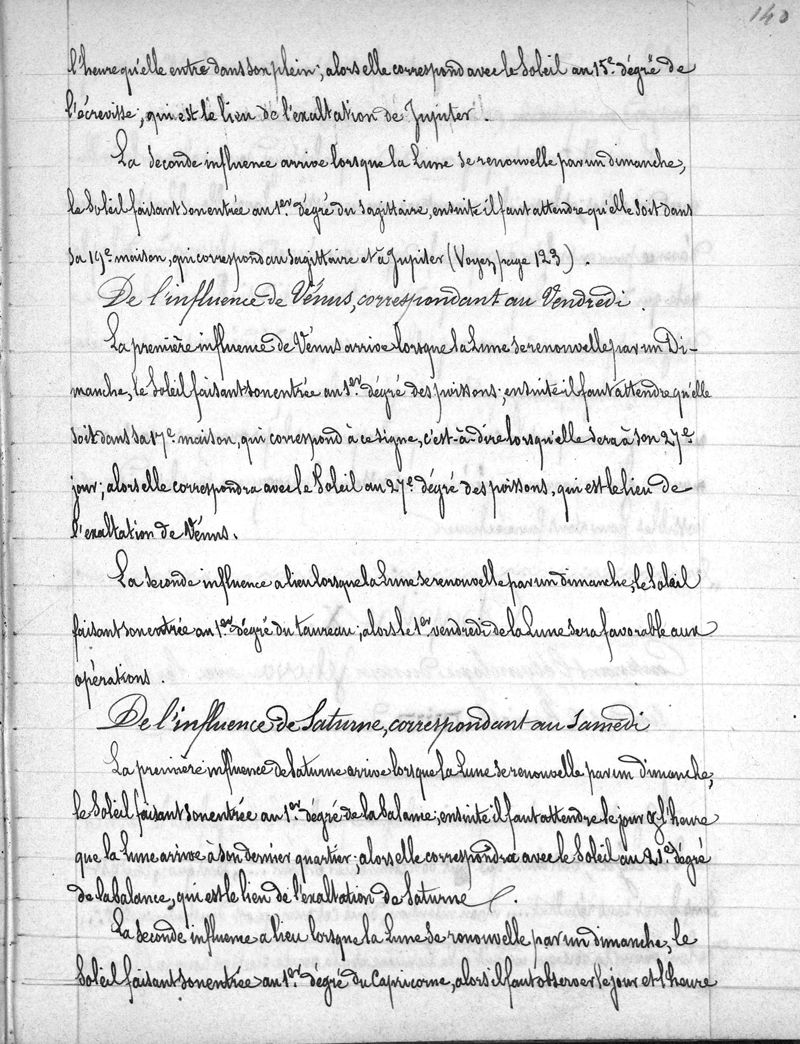 140
l'heure qu'elle entre dans son plein; alors elle correspond avec le Soleil au 15e dégré de
l'écrevisse, qui est le lieu de l'exaltation de Jupiter.
La seconde influence arrive lorsque la Lune se renouvelle par un dimanche,
le Soleil faisant son entrée au 1er dégré du sagittaire, ensuite il faut attendre qu'elle soit dans
sa 19e maison, qui correspond au sagittaire et à Jupiter (Voyez page 123).
De l'influence de Vénus, correspondant au Vendredi.
La première influence de Vénus arrive lorsque la Lune se renouvelle par un Di-
manche, le Soleil faisant son entrée au 1er dégré des poissons; ensuite il faut attendre qu'elle
soit dans sa 17e maison, qui correspond à ce signe, c'est-à-dire lorsqu'elle sera à son 27e
jour; alors elle correspondra avec le Soleil au 27e dégré des poissons, qui est le lieu de
l'exaltation de Vénus.
La seconde influence a lieu lorsque la Lune se renouvelle par un dimanche, le Soleil
faisant son entrée au 1er dégré du taureau; alors le 1er vendredi de la Lune sera favorable aux
opérations.
De l'influence de Saturne, correspondant au Samedi
La première influence de Saturne arrive lorsque la Lune se renouvelle par un dimanche,
le Soleil faisant son entrée au 1er dégré de la balance; ensuite il faut attendre le jour & l'heure
que la Lune arrive à son dernier quartier; alors elle correspondra avec le Soleil au 21e dégré
de la balance, qui est le lieu de l'exaltation de Saturne.
La seconde influence a lieu lorsque la Lune se renouvelle par un dimanche, le
Soleil faisant son entrée au 1er dégré du Capricorne, alors il faut observer le jour et l'heure